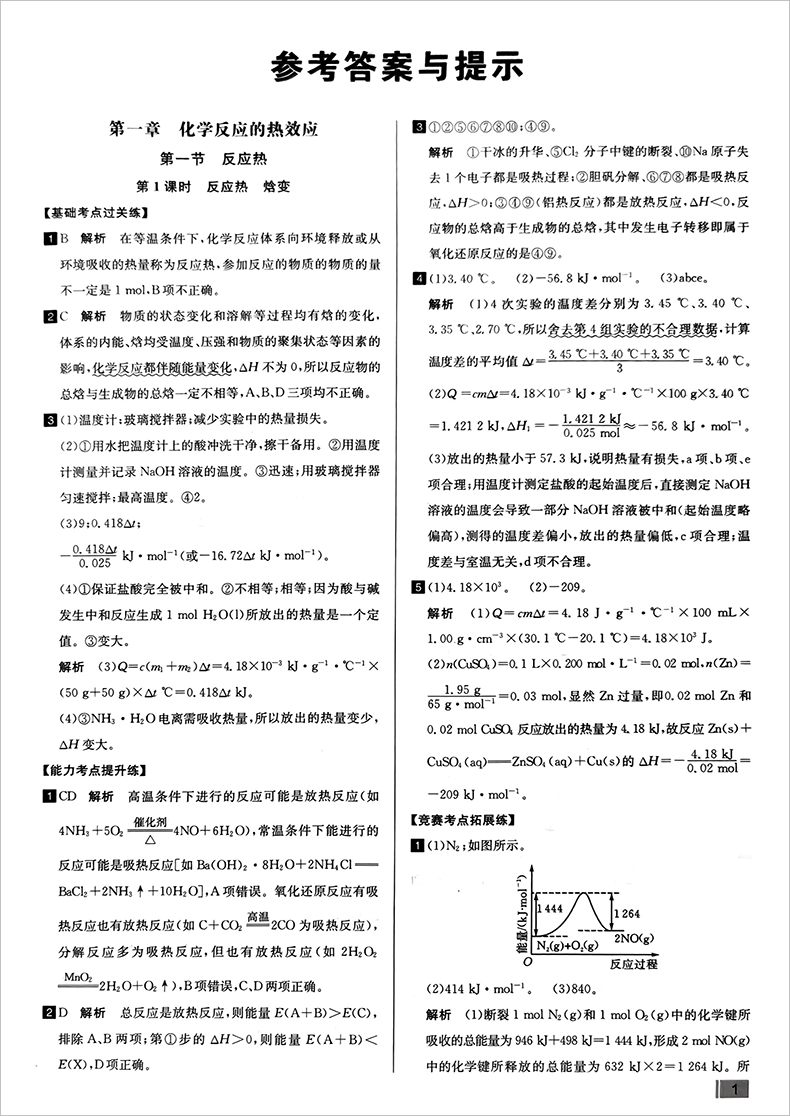 参考答案与提示
第一章 化学反应的热效应
第一节 反应热
第1课时 反应热 焓变
【基础考点过关练】
1 B 解析 在等温条件下,化学反应体系向环境释放或从
环境吸收的热量称为反应热,参加反应的物质的物质的量
不一定是 1 mol,B项不正确。
2 C 解析 物质的状态变化和溶解等过程均有焓的变化,
体系的内能、焓均受温度、压强和物质的聚集状态等因素的
影响,化学反应都伴随能量变化,ΔH 不为 0,所以反应物的
总焓与生成物的总焓一定不相等,A、B、D三项均不正确。
3 (1)温度计;玻璃搅拌器;减少实验中的热量损失。
(2)①用水把温度计上的酸冲洗干净,擦干备用。②用温度
计测量并记录 NaOH 溶液的温度。③迅速;用玻璃搅拌器
匀速搅拌;最高温度。④2。
(3)9;0.418Δt;
-0.418Δt/0.025 kJ·mol⁻¹(或-16.72Δt kJ·mol⁻¹)。
(4)①保证盐酸完全被中和。②不相等;相等;因为酸与碱
发生中和反应生成 1 mol H₂O(l)所放出的热量是一个定
值。③变大。
解析 (3)Q=c(m₁+m₂)Δt=4.18×10⁻³ kJ·g⁻¹·℃⁻¹×
(50 g+50 g)×Δt ℃=0.418Δt kJ。
(4)③NH₃·H₂O电离需吸收热量,所以放出的热量变少,
ΔH 变大。
【能力考点提升练】
1 CD 解析 高温条件下进行的反应可能是放热反应(如
4NH₃+5O₂ 催化剂══△ 4NO+6H₂O),常温条件下能进行的
反应可能是吸热反应[如 Ba(OH)₂·8H₂O+2NH₄Cl══
BaCl₂+2NH₃↑+10H₂O],A项错误。氧化还原反应有吸
热反应也有放热反应(如 C+CO₂ 高温══ 2CO 为吸热反应),
分解反应多为吸热反应,但也有放热反应(如 2H₂O₂
MnO₂══ 2H₂O+O₂↑),B项错误,C、D两项正确。
2 D 解析 总反应是放热反应,则能量 E(A+B)>E(C),
排除 A、B 两项;第①步的 ΔH>0,则能量 E(A+B)<
E(X),D项正确。
3 ①②⑤⑥⑦⑧⑩;④⑨。
解析 ①干冰的升华、⑤Cl₂ 分子中键的断裂、⑩Na 原子失
去1个电子都是吸热过程;②胆矾分解、⑥⑦⑧都是吸热反
应,ΔH>0;③④⑨(铝热反应)都是放热反应,ΔH<0,反
应物的总焓高于生成物的总焓,其中发生电子转移即属于
氧化还原反应的是④⑨。
4 (1)3.40 ℃。 (2)-56.8 kJ·mol⁻¹。 (3)abce。
解析 (1)4 次实验的温度差分别为 3.45 ℃、3.40 ℃、
3.35 ℃、2.70 ℃,所以舍去第4组实验的不合理数据,计算
温度差的平均值 Δt=(3.45 ℃+3.40 ℃+3.35 ℃)/3=3.40 ℃。
(2)Q=cmΔt=4.18×10⁻³ kJ·g⁻¹·℃⁻¹×100 g×3.40 ℃
=1.421 2 kJ,ΔH₁=-1.421 2 kJ/0.025 mol≈-56.8 kJ·mol⁻¹。
(3)放出的热量小于 57.3 kJ,说明热量有损失,a项、b项、e
项合理;用温度计测定盐酸的起始温度后,直接测定 NaOH
溶液的温度会导致一部分 NaOH 溶液被中和(起始温度略
偏高),测得的温度差偏小,放出的热量偏低,c项合理;温
度差与室温无关,d项不合理。
5 (1)4.18×10³。 (2)-209。
解析 (1)Q=cmΔt=4.18 J·g⁻¹·℃⁻¹×100 mL×
1.00 g·cm⁻³×(30.1 ℃-20.1 ℃)=4.18×10³ J。
(2)n(CuSO₄)=0.1 L×0.200 mol·L⁻¹=0.02 mol,n(Zn)=
1.95 g/65 g·mol⁻¹=0.03 mol,显然 Zn 过量,即0.02 mol Zn 和
0.02 mol CuSO₄ 反应放出的热量为 4.18 kJ,故反应 Zn(s)+
CuSO₄(aq)══ZnSO₄(aq)+Cu(s)的 ΔH=-4.18 kJ/0.02 mol=
-209 kJ·mol⁻¹。
【竞赛考点拓展练】
1 (1)N₂;如图所示。
能量/(kJ·mol⁻¹)
1 444
1 264
2NO(g)
N₂(g)+O₂(g)
O
反应过程
(2)414 kJ·mol⁻¹。 (3)840。
解析 (1)断裂 1 mol N₂(g)和 1 mol O₂(g)中的化学键所
吸收的总能量为 946 kJ+498 kJ=1 444 kJ,形成 2 mol NO(g)
中的化学键所释放的总能量为 632 kJ×2=1 264 kJ。所
1